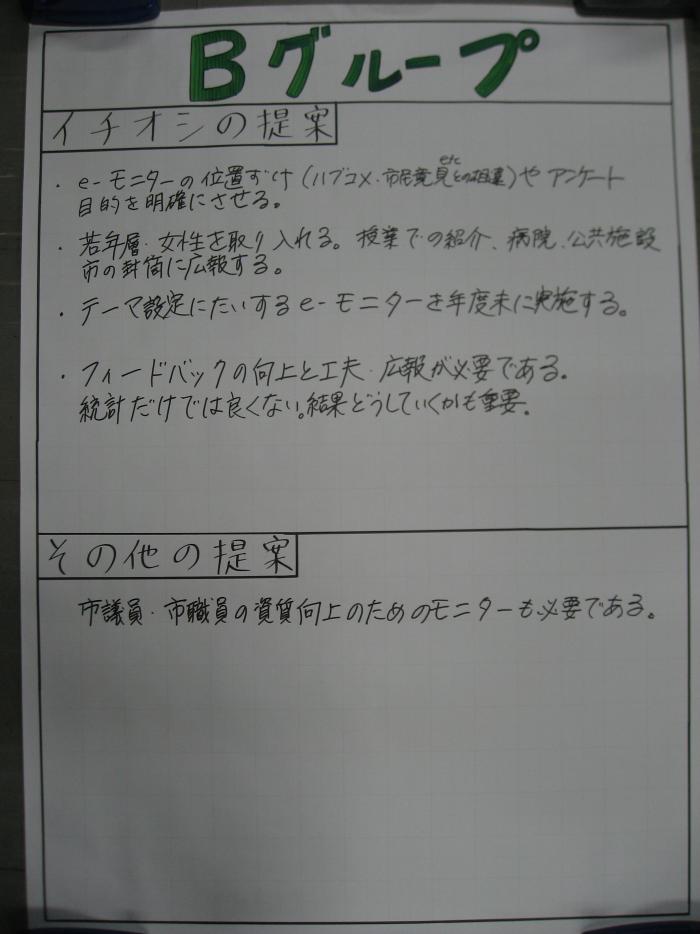 Bグループ
イチオシの提案
・e-モニターの位置ずけ(パブコメ・市民意見etcとの相違)や アンケート
目的を明確にさせる。
・若年層・女性を取り入れる。授業での紹介、病院、公共施設
市の封筒に広報する。
・テーマ設定にたいするe-モニターを年度末に実施する。
・フィードバックの向上と工夫・広報が必要である。
統計だけでは良くない。結果どうしていくかも重要。
その他の提案
市議員・市職員の資質向上のためのモニターも必要である。